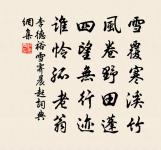 雪覆寒溪竹
風卷野田蓬
四望無行迹
誰憐孤老翁
李德裕雪霽晨起詞典
網集